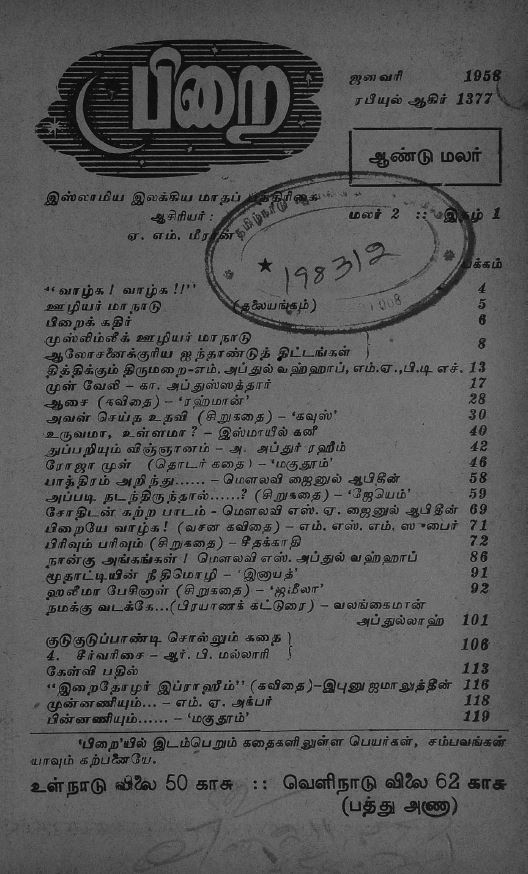 பிறை
ஜனவரி 1958
ரபியுல் ஆகிர் 1377
ஆண்டு மலர்
இஸ்லாமிய இலக்கிய மாதப் பத்திரிகை
ஆசிரியர் :
மலர் 2 :: இதழ் 1
ஏ. எம். மீரான்
தமிழ்நாடு
198312
பக்கம்
“வாழ்க ! வாழ்க !!” 4
ஊழியர் மாநாடு (தலையங்கம்) 5
பிறைக் கதிர் 6
முஸ்லிம்லீக் ஊழியர் மாநாடு
ஆலோசனைக்குரிய ஐந்தாண்டுத் திட்டங்கள் 8
தித்திக்கும் திருமறை-எம். அப்துல் வஹ்ஹாப், எம்.ஏ.,பி.டி எச். 13
முள் வேலி – கா. அப்துஸ்ஸத்தார் 17
ஆசை (கவிதை) – ‘ரஹ்மான்’ 28
அவன் செய்த உதவி (சிறுகதை) – ‘கவுஸ்’ 30
உருவமா, உள்ளமா ? – இஸ்மாயீல் கனீ 40
துப்பறியும் விஞ்ஞானம் – அ. அப்துர் ரஹீம் 42
ரோஜா முள் (தொடர் கதை) – ‘மகுதூம்’ 46
பாத்திரம் அறிந்து...... – மௌலவி ஜைனுல் ஆபிதீன் 58
அப்படி நடந்திருந்தால்......? (சிறுகதை) – ‘ஜேயெம்’ 59
சோதிடன் கற்ற பாடம் - மௌலவி எஸ். ஏ. ஜைனுல் ஆபிதீன் 69
பிறையே வாழ்க! (வசன கவிதை) – எம். எஸ். எம். ஸுபைர் 71
பிரிவும் பரிவும் (சிறுகதை) – சீதக்காதி 72
நான்கு அங்கங்கள் ! மௌலவி எஸ். அப்துல் வஹ்ஹாப் 86
மூதாட்டியின் நீதிமொழி – ‘இனாயத்’ 91
ஹலீமா பேசினாள் (சிறுகதை) – ‘ஜமீலா’ 92
நமக்கு வடக்கே...(பிரயாணக் கட்டுரை) – வலங்கைமான்
அப்துல்லாஹ் 101
குடுகுடுப்பாண்டி சொல்லும் கதை
4. சீர்வரிசை – ஆர். பி. மல்லாரி 106
கேள்வி பதில் 113
“இறைதோழர் இப்ராஹீம்” (கவிதை)–இபுனு ஜமாலுத்தீன் 116
முன்னணியும்... – எம். ஏ. அக்பர் 118
பின்னணியும்...... – ‘மகுதூம்’ 119
‘பிறை’யில் இடம்பெறும் கதைகளிலுள்ள பெயர்கள், சம்பவங்கள்
யாவும் கற்பனையே.
உள்நாடு விலை 50 காசு :: வெளிநாடு விலை 62 காசு
(பத்து அணா)